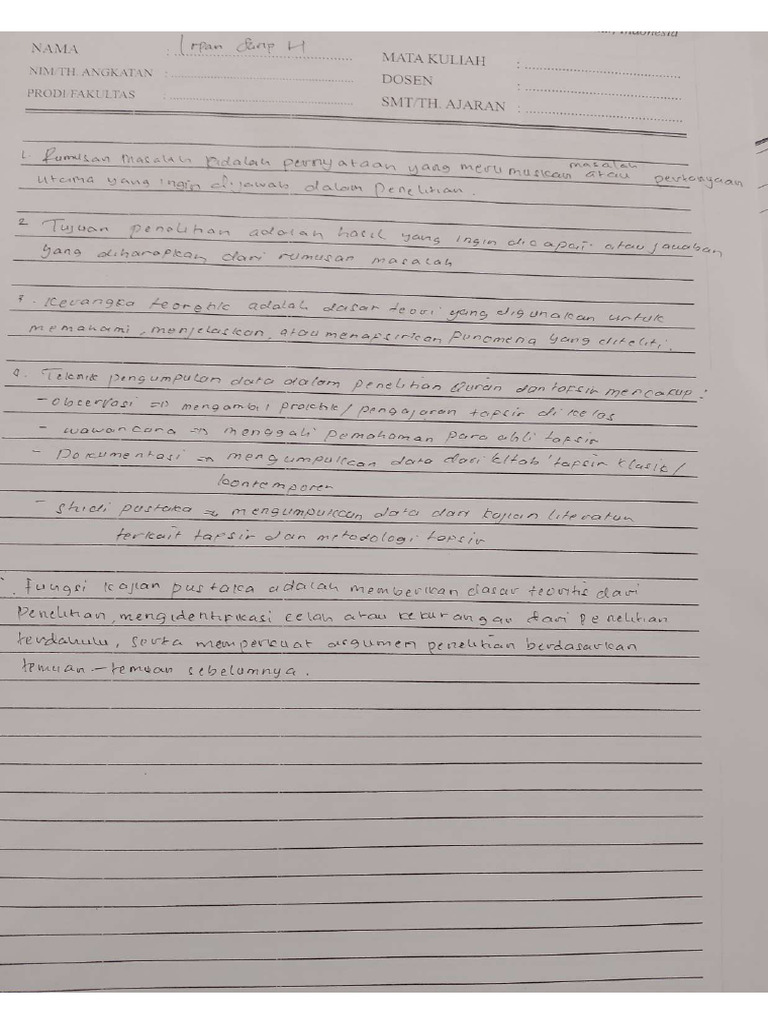 Indonesia
NAMA : Irpan H
MATA KULIAH : ....................
NIM/TH. ANGKATAN : ....................
DOSEN : ....................
PRODI/FAKULTAS : ....................
SMT/TH. AJARAN : ....................
1. Rumusan Masalah adalah pernyataan yang merumuskan masalah atau pertanyaan
utama yang ingin dijawab dalam Penelitian.
2. Tujuan penelitian adalah hasil yang ingin dicapai atau jawaban
yang diharapkan dari rumusan masalah
3. Kerangka teoretik adalah dasar teori yang digunakan untuk
memahami, menjelaskan, atau menafsirkan Punomena yang diteliti.
4. Teknik pengumpulan data dalam penelitian Quran dan tafsir mencakup :
- Observasi => mengambil praktik / pengajaran tafsir di kelas
- wawancara => menggali pemahaman para ahli tafsir
- Dokumentasi => mengumpulkan data dari kitab tafsir klasik /
kontemporer
- studi pustaka => mengumpulkan data dari kajian literatur
terkait tafsir dan metodologi tafsir
. Fungsi kajian pustaka adalah memberikan dasar teoritis dari
Penelitian, mengidentifikasi celah atau kekurangan dari penelitian
terdahulu, serta memperkuat argumen penelitian berdasarkan
temuan - temuan sebelumnya.